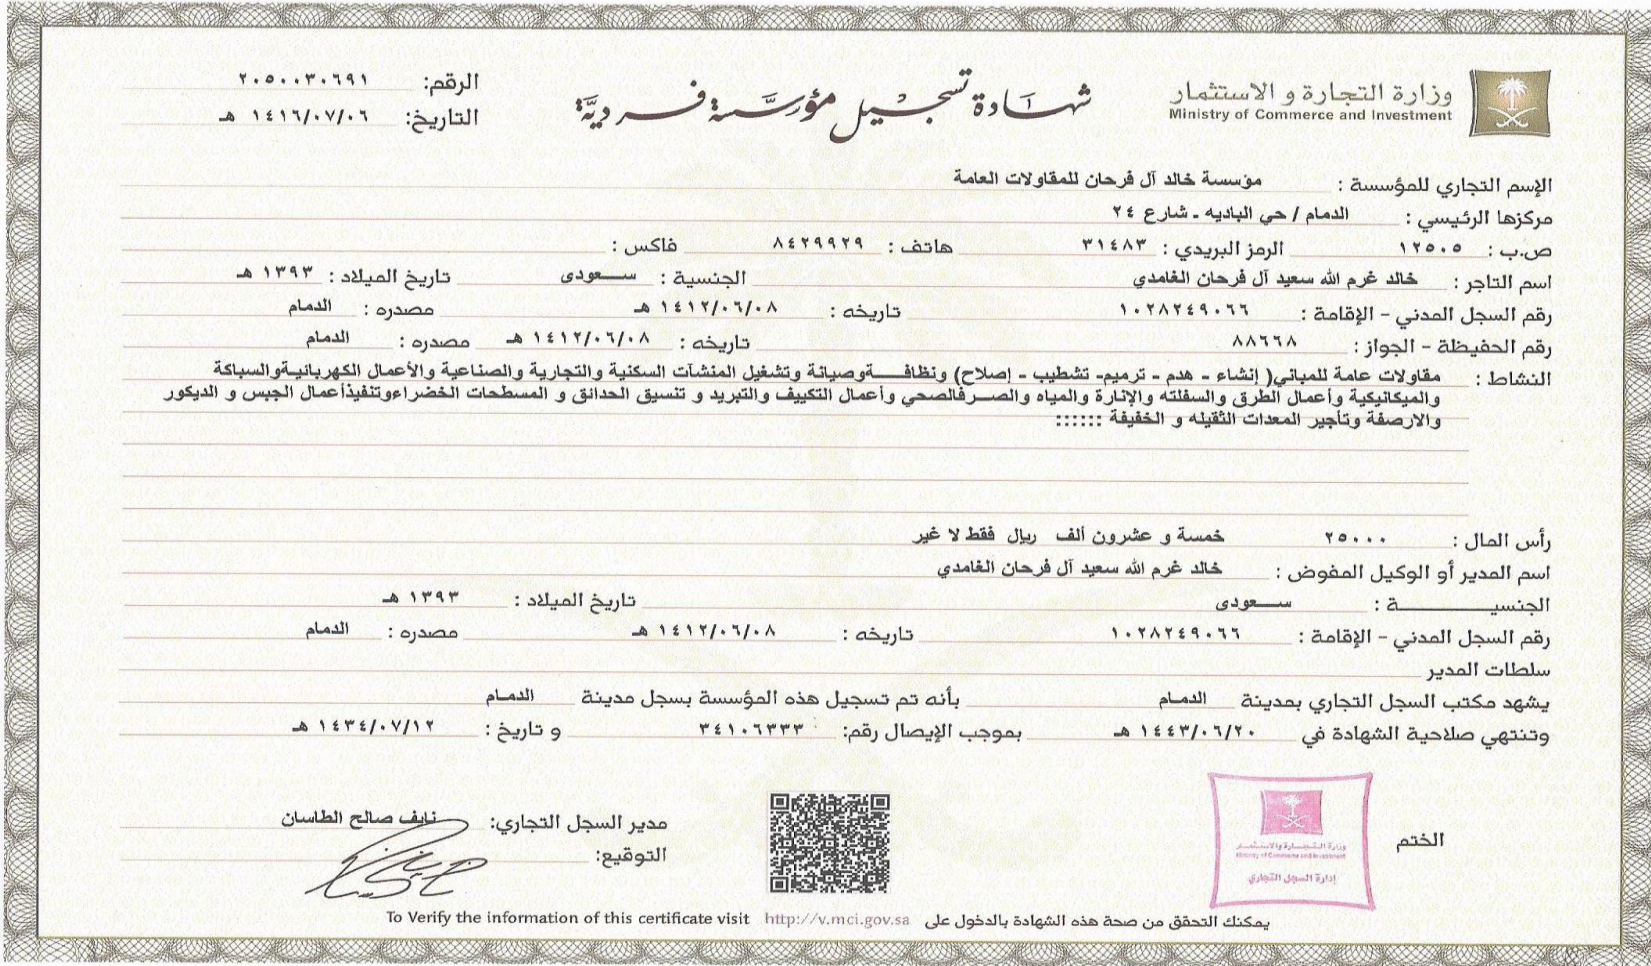 وزارة التجارة و الاستثمار
Ministry of Commerce and Investment
شهادة تسجيل مؤسسة فردية
الرقم: ٢٠٥٠٠٣٠٦٩١
التاريخ: ١٤١٦/٠٧/٠٦ هـ
الإسم التجاري للمؤسسة : مؤسسة خالد آل فرحان للمقاولات العامة
مركزها الرئيسي : الدمام / حي الباديه ـ شارع ٢٤
ص.ب : ١٢٥٠٥ الرمز البريدي : ٣١٤٨٣ هاتف : ٨٤٢٩٩٢٩ فاكس :
اسم التاجر : خالد غرم الله سعيد آل فرحان الغامدي الجنسية : سـعودى تاريخ الميلاد : ١٣٩٣ هـ
رقم السجل المدني - الإقامة : ١٠٢٨٢٤٩٠٦٦ تاريخه : ١٤١٢/٠٦/٠٨ هـ مصدره : الدمام
رقم الحفيظة - الجواز : ٨٨٦٦٨ تاريخه : ١٤١٢/٠٦/٠٨ هـ مصدره : الدمام
النشاط : مقاولات عامة للمباني( إنشاء - هدم - ترميم- تشطيب - إصلاح) ونظافـــةوصيانة وتشغيل المنشآت السكنية والتجارية والصناعية والأعمال الكهربائيةوالسباكة
والميكانيكية وأعمال الطرق والسفلته والإنارة والمياه والصـرفالصحي وأعمال التكييف والتبريد و تنسيق الحدائق و المسطحات الخضراءوتنفيذأعمال الجبس و الديكور
والارصفة وتأجير المعدات الثقيله و الخفيفة ::::::
رأس المال : ٢٥٠٠٠ خمسة و عشرون ألف ريال فقط لا غير
اسم المدير أو الوكيل المفوض : خالد غرم الله سعيد آل فرحان الغامدي
الجنسيـــــــة : سـعودى تاريخ الميلاد : ١٣٩٣ هـ
رقم السجل المدني - الإقامة : ١٠٢٨٢٤٩٠٦٦ تاريخه : ١٤١٢/٠٦/٠٨ هـ مصدره : الدمام
سلطات المدير
يشهد مكتب السجل التجاري بمدينة الدمـام بأنه تم تسجيل هذه المؤسسة بسجل مدينة الدمـام
وتنتهي صلاحية الشهادة في ١٤٤٣/٠٦/٢٠ هـ بموجب الإيصال رقم: ٣٤١٠٦٣٣٣ و تاريخ : ١٤٣٤/٠٧/١٢ هـ
الختم
وزارة التجـارة والاستثمـار
Ministry of Commerce and Investment
إدارة السجل التجاري
مدير السجل التجاري: نايف صالح الطاسان
التوقيع:
يمكنك التحقق من صحة هذه الشهادة بالدخول على http://v.mci.gov.sa To Verify the information of this certificate visit